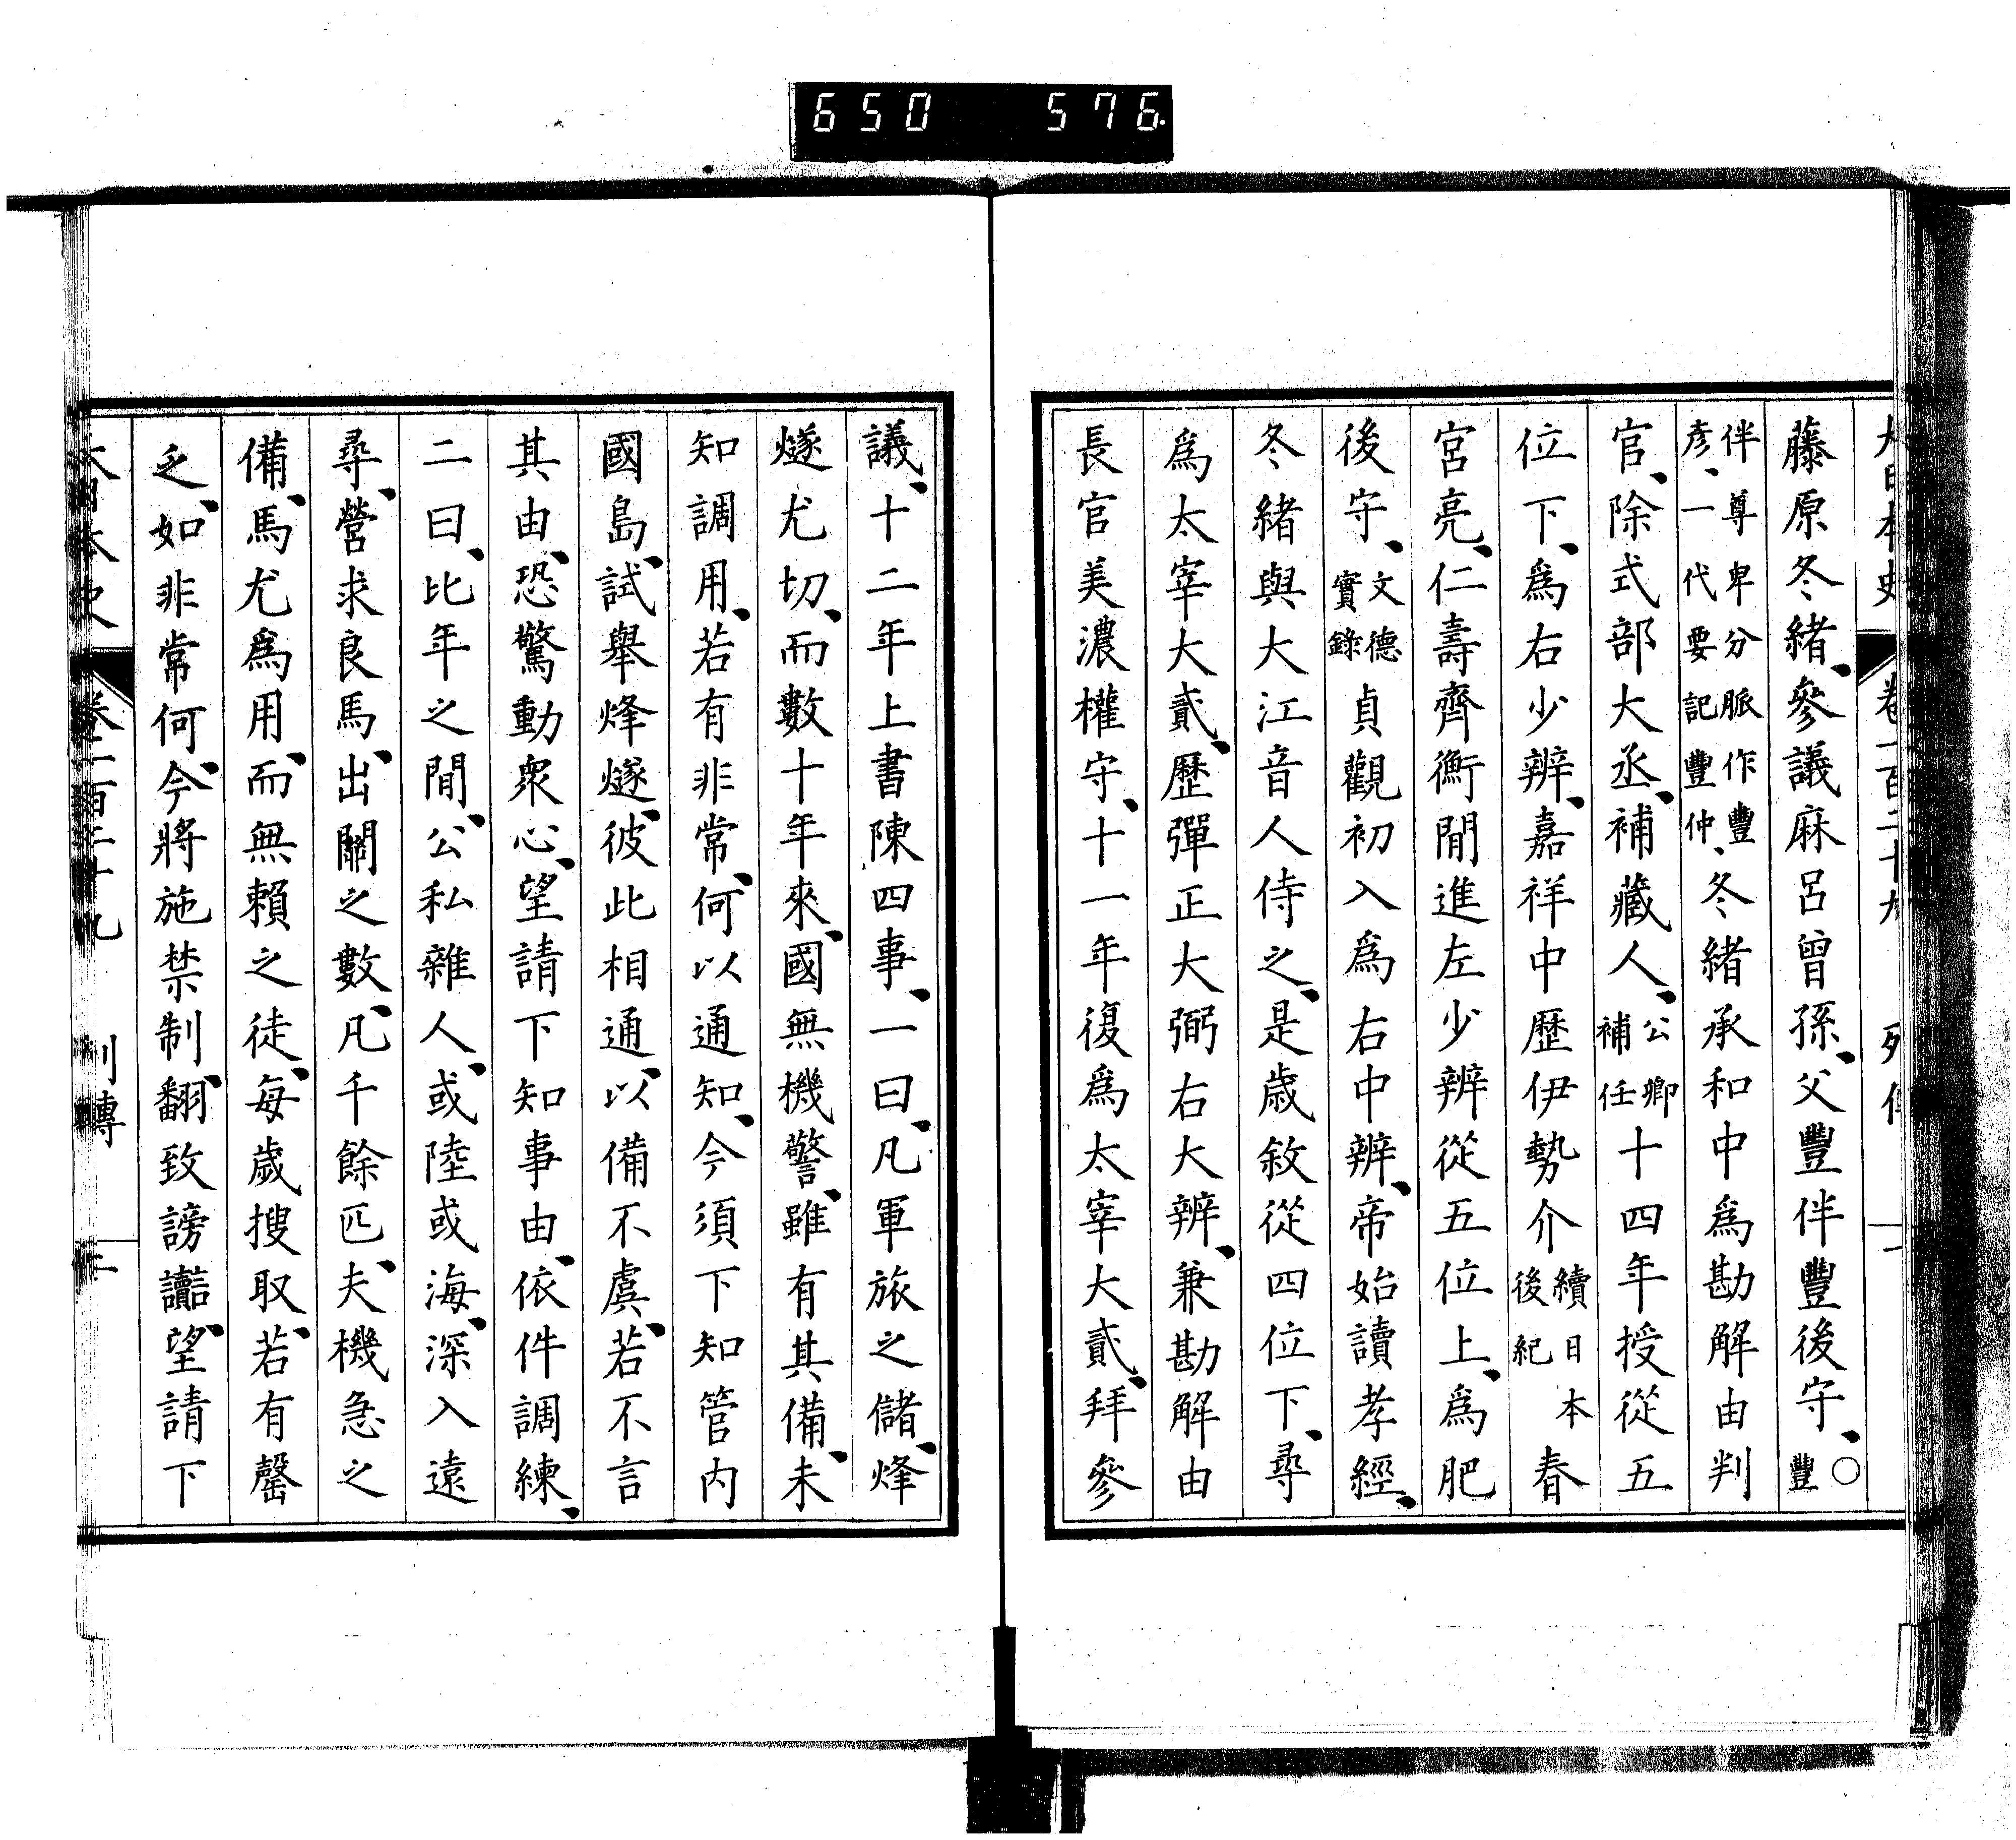 650 576.
藤原冬緒、參議麻呂曾孫、父豐伴豐後守、○豐
伴尊卑分脈作豐彦、一代要記豐仲、冬緒承和中爲勘解由判
官、除式部大丞、補藏人、公卿補任十四年授從五
位下、爲右少辨、嘉祥中歷伊勢介續日本後紀春
宮亮、仁壽齊衡閒進左少辨從五位上、爲肥
後守、文德實錄貞觀初入爲右中辨、帝始讀孝經、
冬緒與大江音人侍之、是歲敘從四位下、尋
爲太宰大貳、歷彈正大弼右大辨、兼勘解由
長官美濃權守、十一年復爲太宰大貳、拜參
議、十二年上書陳四事、一曰、凡軍旅之儲、烽
燧尤切、而數十年來、國無機警、雖有其備、未
知調用、若有非常、何以通知、今須下知管内
國島、試舉烽燧、彼此相通、以備不虞、若不言
其由、恐驚動衆心、望請下知事由、依件調練、
二曰、比年之閒、公私雜人、或陸或海、深入遠
尋、營求良馬、出關之數、凡千餘匹、夫機急之
備、馬尤爲用、而無賴之徒、每歲搜取、若有罄
乏、如非常何、今將施禁制、翻致謗讟、望請下
大日本史 卷一百二十九 列傳 二